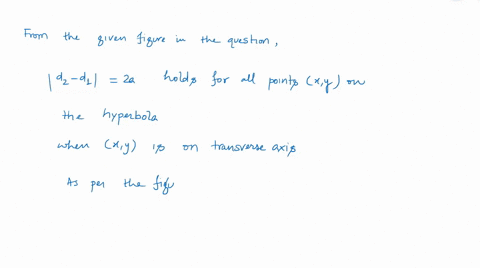 From the given figure in the question,
|d₂-d₁| = 2a holds for all points (x,y) on
the hyperbola
when (x,y) is on transverse axis
As per the figu